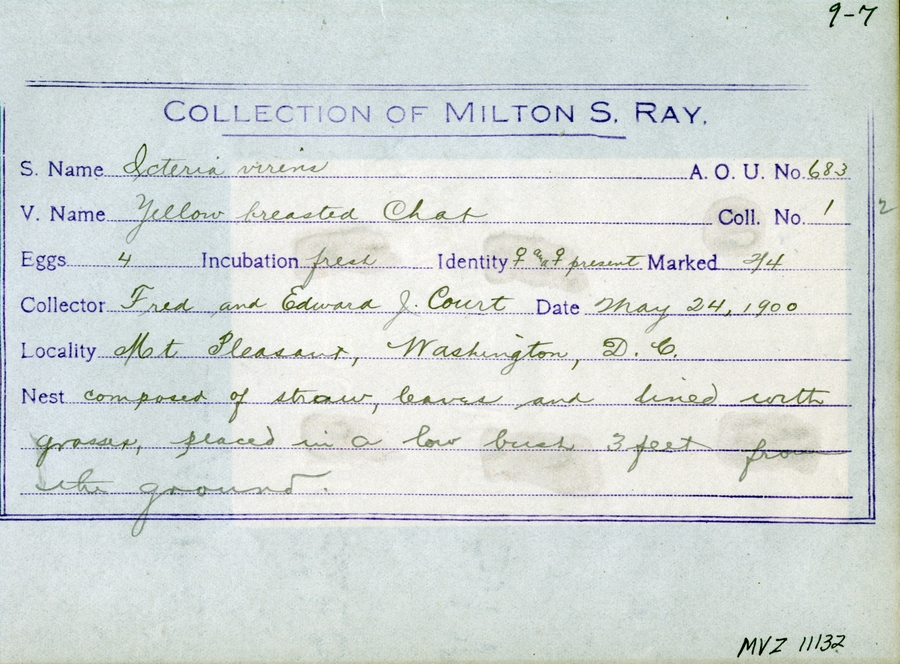 9-7
COLLECTION OF MILTON S. RAY.
S. Name Icteria virens A. O. U. No. 683
V. Name Yellow breasted Chat Coll. No. 1
2
Eggs 4 Incubation fresh Identity present Marked 2/4
Collector Fred and Edward J. Court Date May 24, 1900
Locality Mt Pleasant, Washington, D. C.
Nest composed of straw, leaves and lined with
grasses, placed in a low bush 3 feet from
the ground.
MVZ 11132